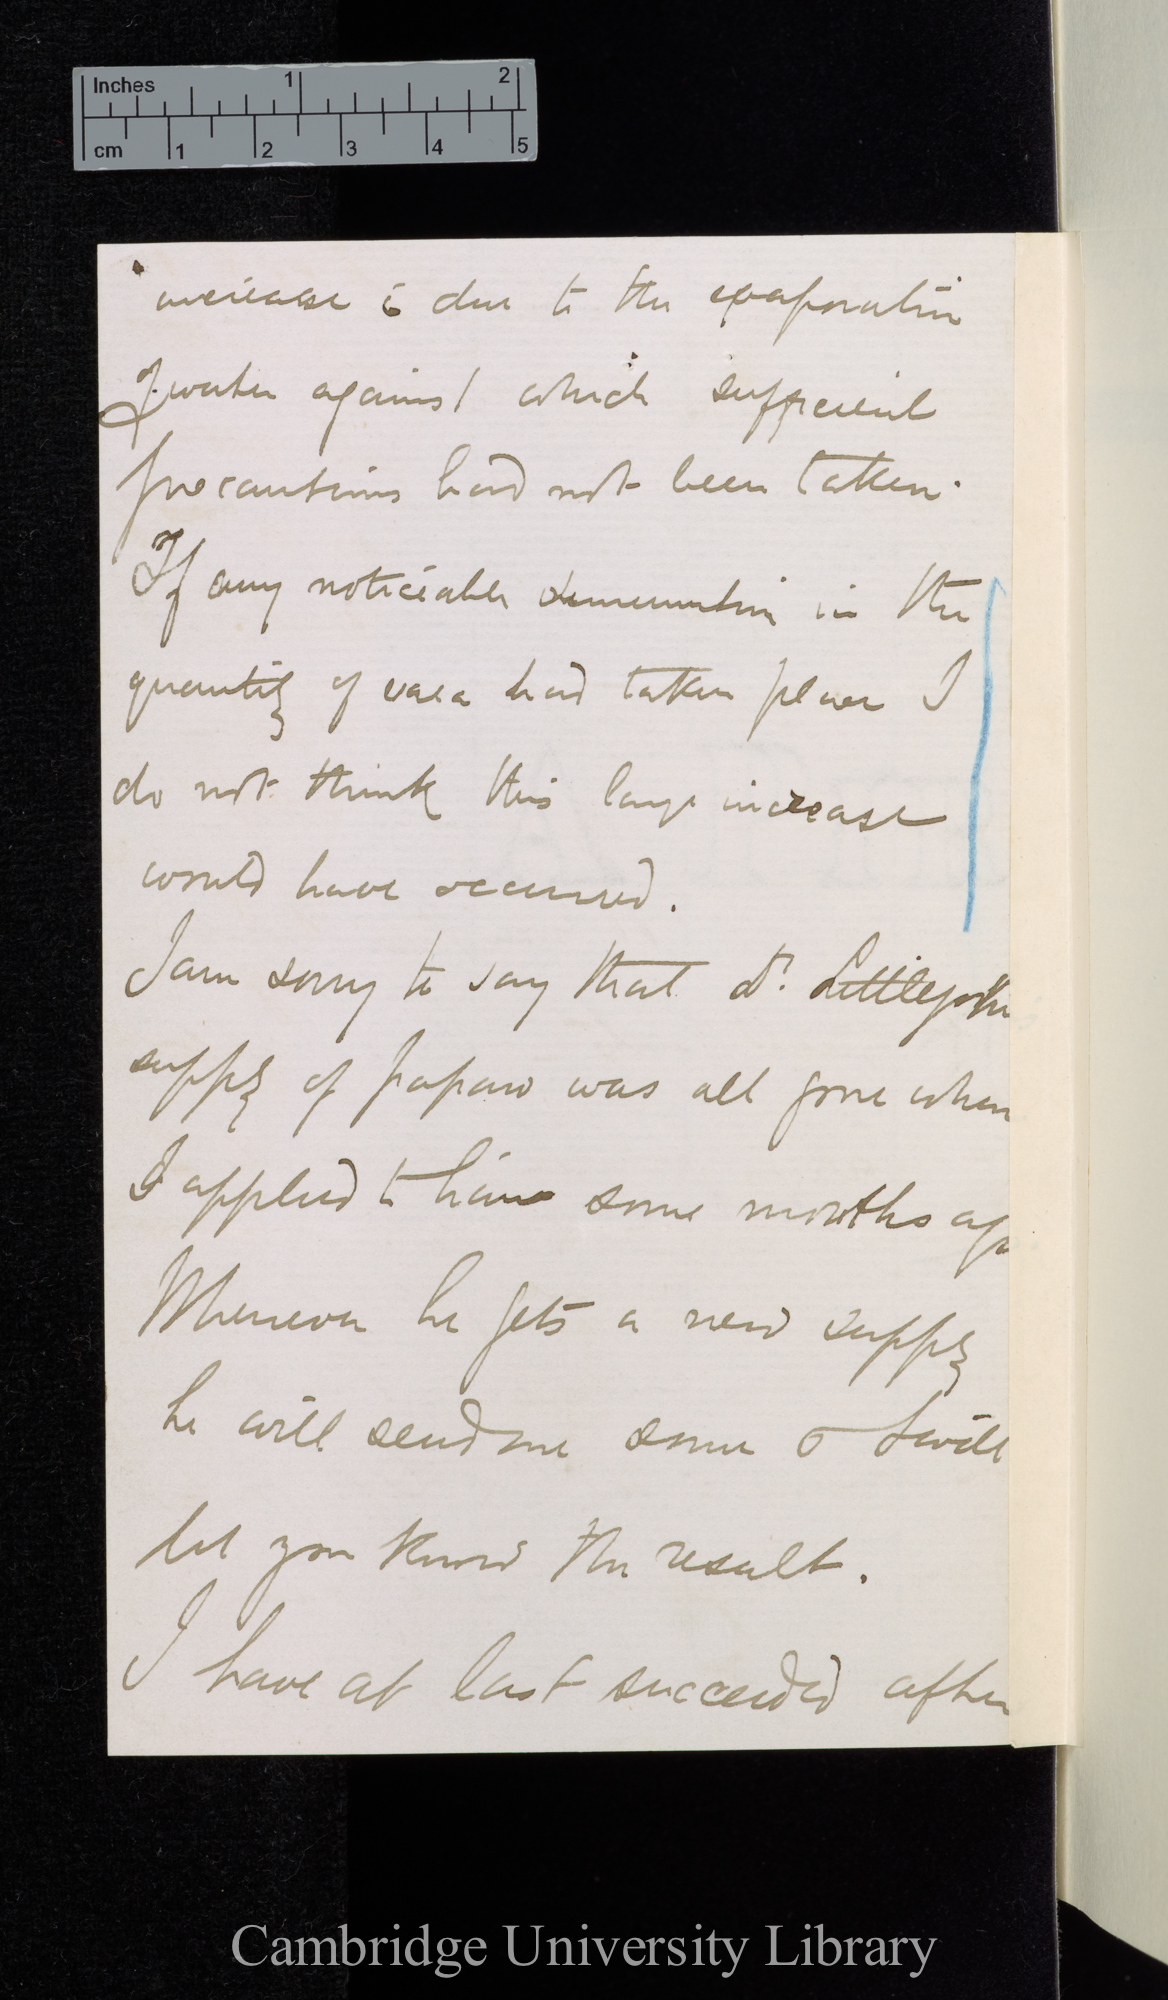 Inches 1 2
cm 1 2 3 4 5
increase is due to the evaporation
of water against which sufficient
precautions had not been taken.
If any noticeable diminution in the
quantity of urea had taken place I
do not think this large increase
would have occurred.
I am sorry to say that Dr. Littlejohn
supply of papaw was all gone when
I applied to him some months ago
Whenever he gets a new supply
he will send me some & I will
let you know the result.
I have at last succeeded after
Cambridge University Library